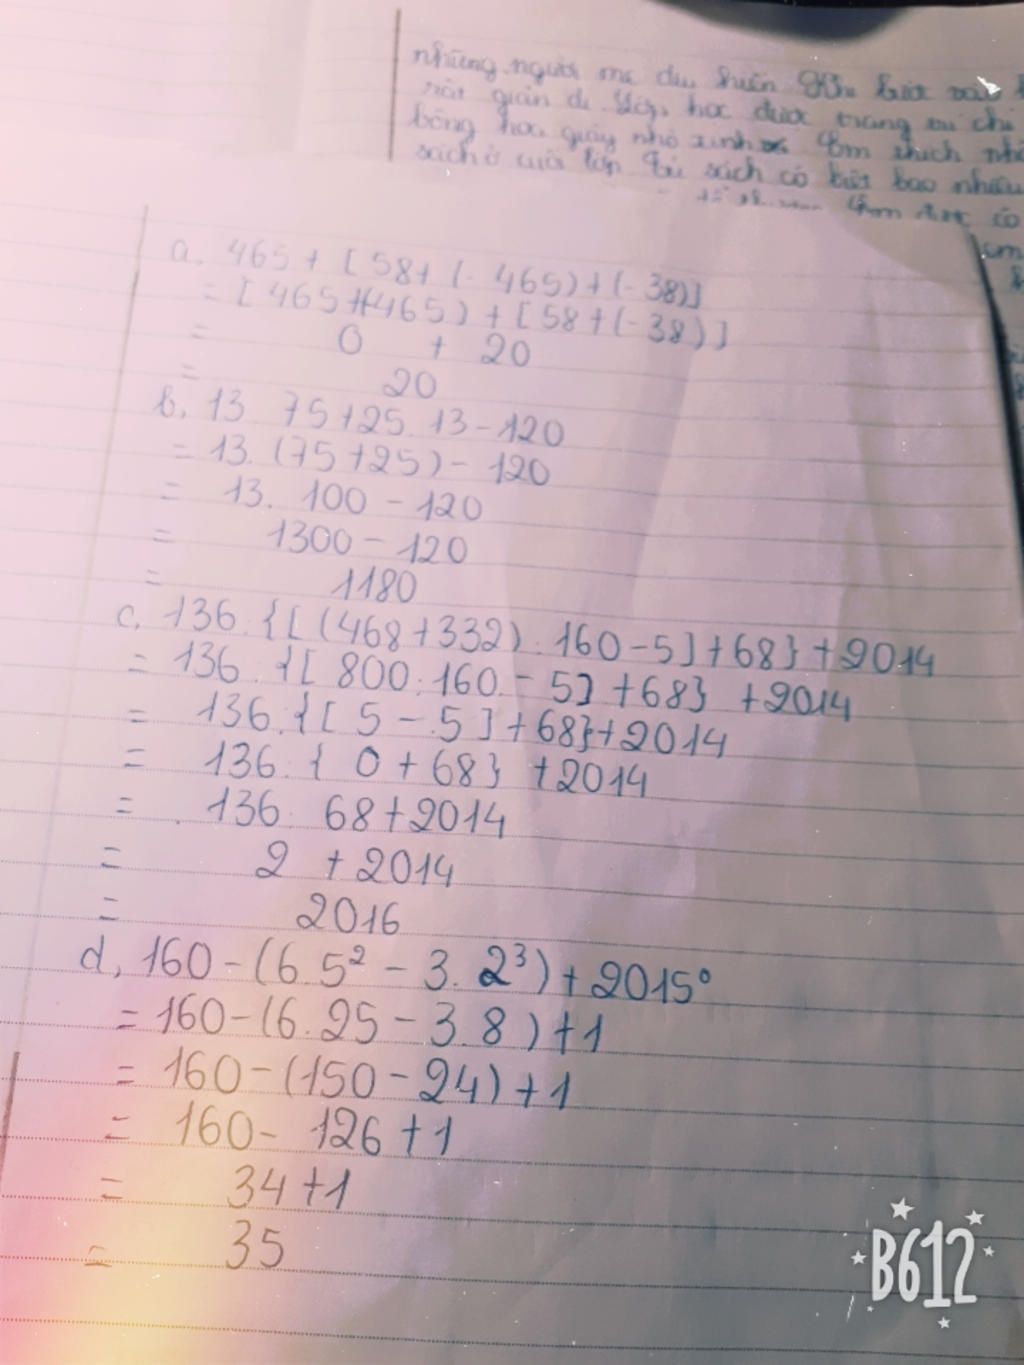 những người mẹ dịu hiền
rất giản dị. lớp học được trang trí chỉ
bông hoa giấy nhỏ xinh Em thích nhất
sách ở cuối lớp Tủ sách có biết bao nhiêu
có
a. 465 + [58 + (- 465) + (- 38)]
= [465 + (-465) + [58 + (-38)]
= 0 + 20
= 20
b. 13 75 + 25. 13 - 120
= 13. (75 + 25) - 120
= 13. 100 - 120
= 1300 - 120
= 1180
c, 136 : {[(468 + 332) : 160 - 5] + 68} + 2014
= 136 : {[800 : 160 - 5] + 68} + 2014
= 136 : {[5 - 5] + 68} + 2014
= 136 : {0 + 68} + 2014
= 136 : 68 + 2014
= 2 + 2014
= 2016
d, 160 - (6. 5² - 3. 2³) + 2015⁰
= 160 - (6. 25 - 3. 8) + 1
= 160 - (150 - 24) + 1
= 160 - 126 + 1
= 34 + 1
= 35
B612